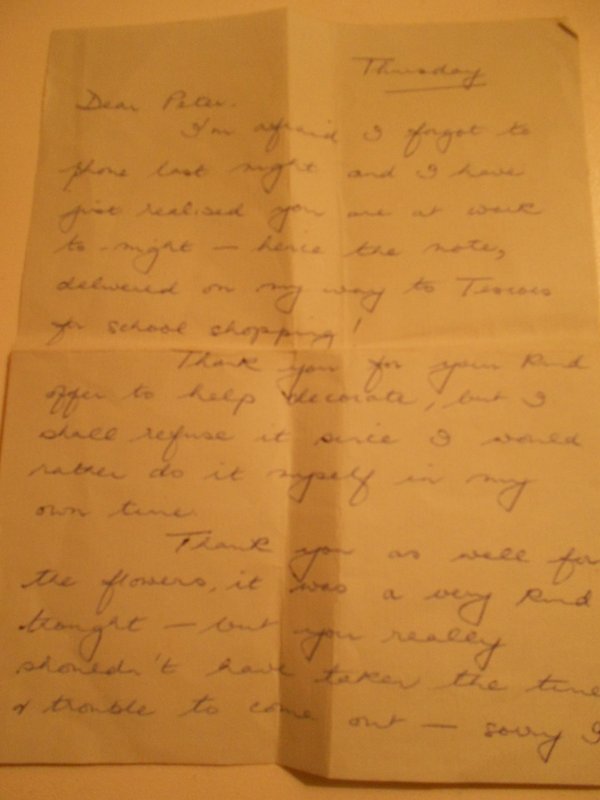 Thursday
Dear Peter.
I'm afraid I forgot to
phone last night and I have
just realised you are at work
to-night — hence the note,
delivered on my way to Tescos
for school shopping!
Thank you for your kind
offer to help decorate, but I
shall refuse it since I would
rather do it myself in my
own time.
Thank you as well for
the flowers, it was a very kind
thought — but you really
shouldn't have taken the time
& trouble to come out — sorry I